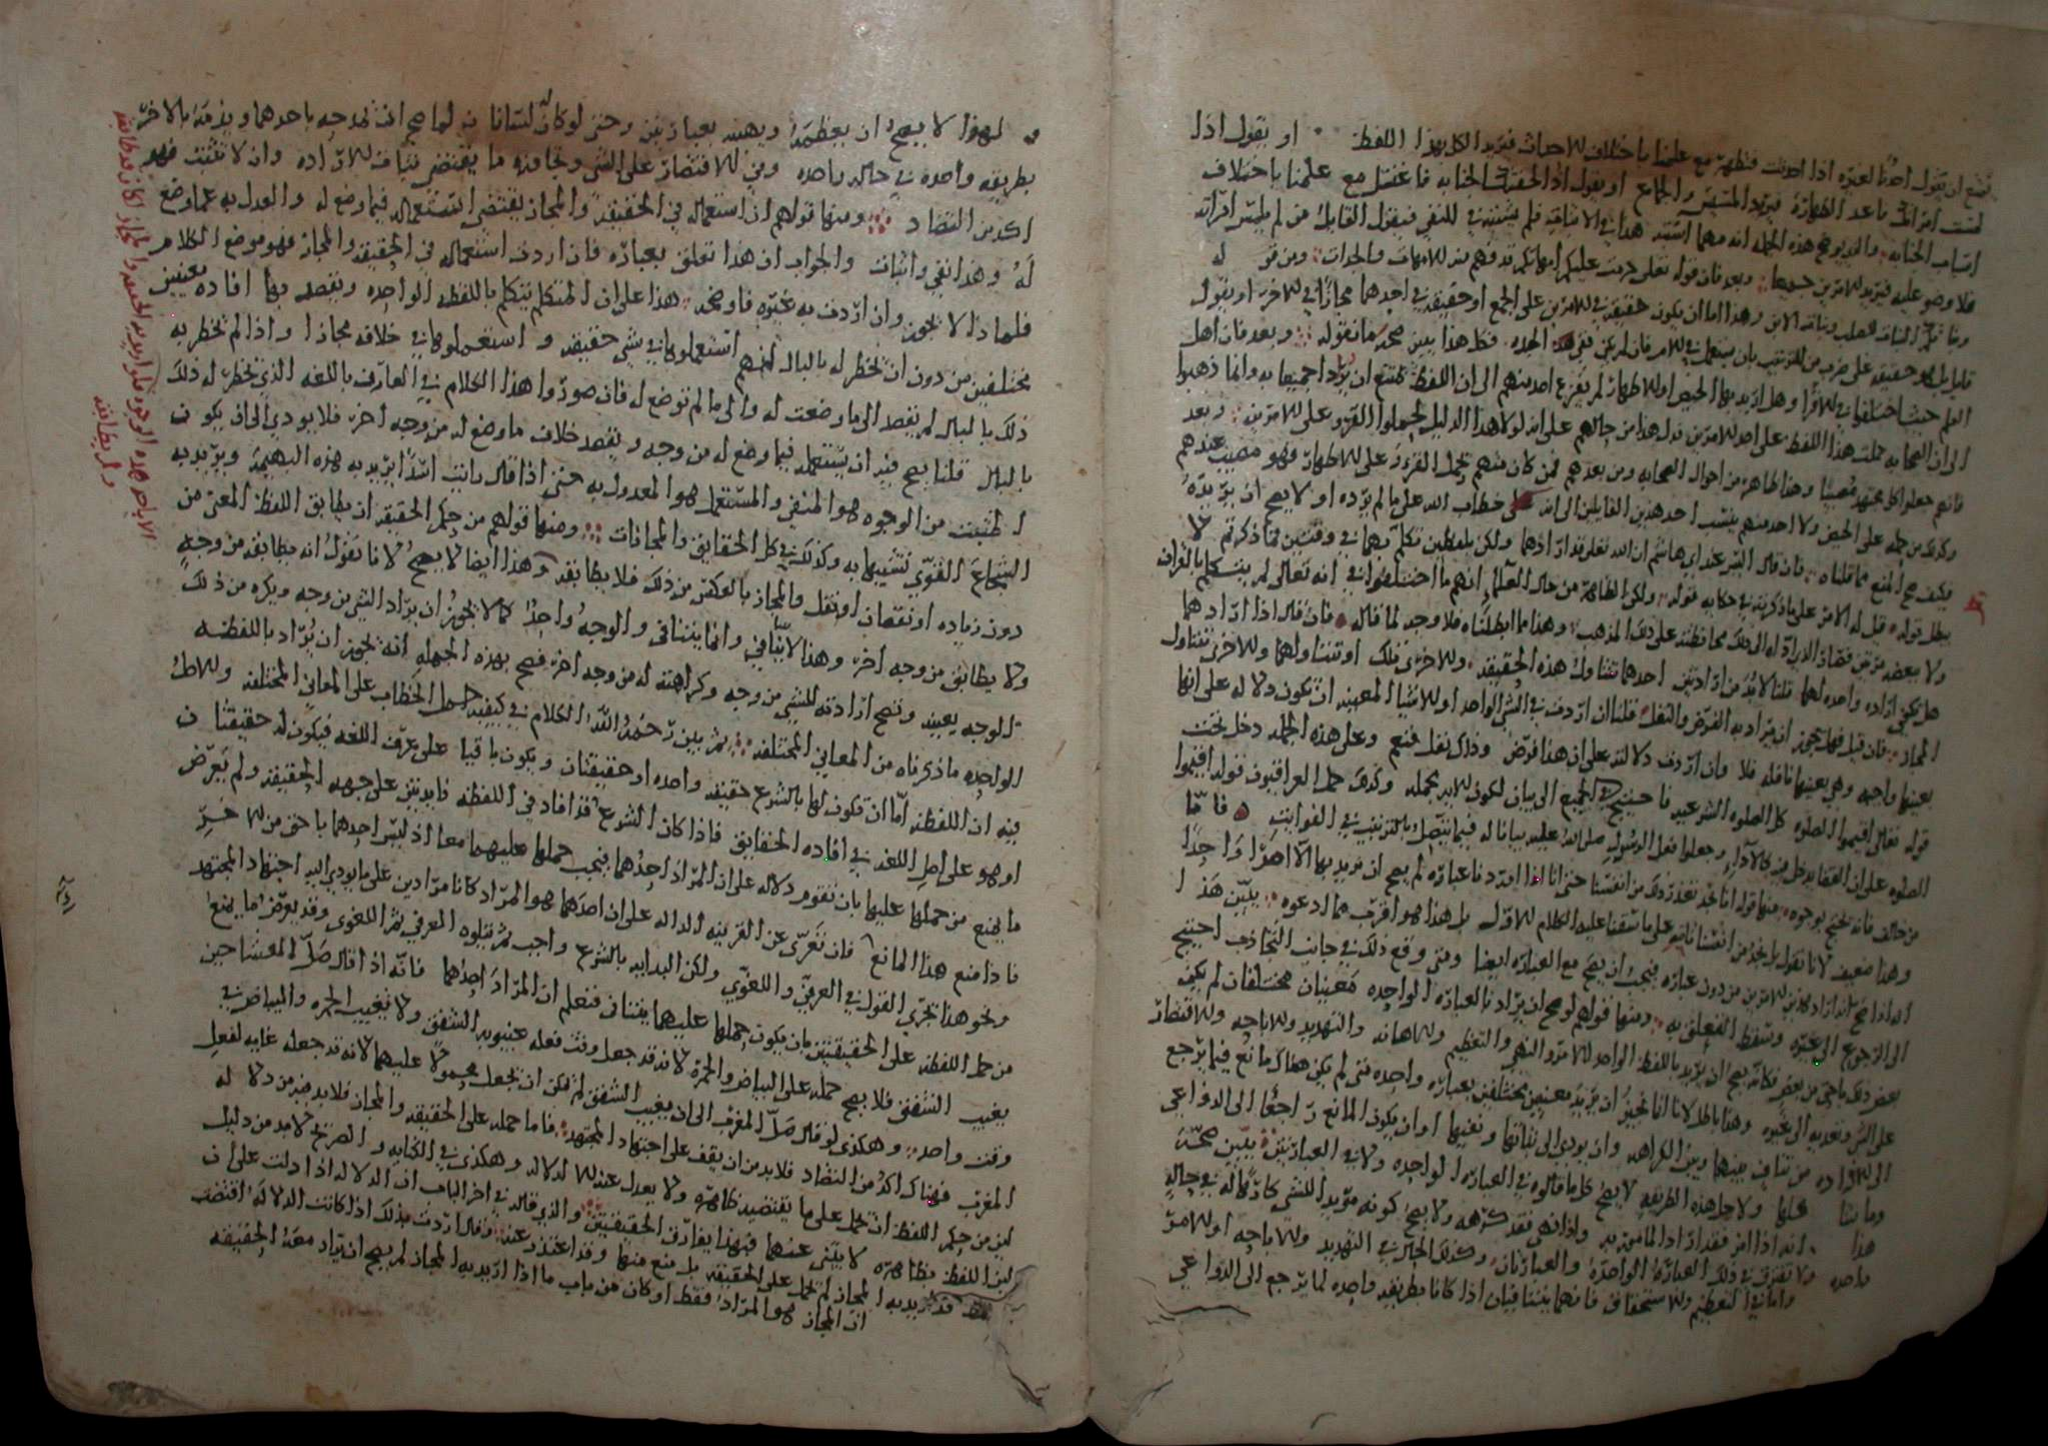 يقول احدنا لغيره اذا احدثت فتطهر مع علمنا باختلاف الاحداث فيريد الكل بهذا اللفظ او يقول اذا
لمست امراتك فاعد الطهارة فيريد المس والجماع او يقول اذا لحقتك الجنابه فاغتسل مع علمنا باختلاف
اسباب الجنابه والذي يوضح هذه الجمله انه مهما
فلا وضو عليه فيريد الامرين جميعا وبعد فان قوله تعالى حرمت عليكم امهاتكم قد فهم منه الامهات والجدات ومن قوله
وبناتكم البنات للصلب وبنات الابن وهذا اما ان يكون حقيقة في الامرين على الجمع او حقيقة في احدهما مجازا في الاخر او يقول
قايل بل هو حقيقه على ضرب من الترتيب فكل هذا يبين صحة ما نقوله وبعد فان اهل
العلم حيث اختلفوا في الاقرا وهل اريد بها الحيض او الاطهار لم يفزع احد منهم الى ان اللفظ يمتنع ان يراد جميعا به وانما ذهبوا
الى ان الصحابه حملت هذا اللفظ على احد الامرين فدل هذا من حالهم على انه لولا هذا الدليل لحملوا القرو على الامرين وبعد
فانهم جعلوا كل مجتهد مصيبا وهذا ظاهر من احوال الصحابه ومن بعدهم فمن كان منهم يحمل القرء على الاطهار فهو مصيب عندهم
وكذلك من حمله على الحيض ولا احد منهم ينسب احد هذين القايلين الى انه حمل خطاب الله على ما لم يرده او لا يصح ان يريده
فكيف صح المنع مما قلناه فان قال اليس عند ابي هاشم ان الله تعالى قد ارادهما ولكن بلفظين تكلم بهما في وقتين فما ذكرتم لا
يبطل قوله قيل له الامر على ما ذكرته في حكايه قوله ولكن الظاهر من حال العلما انهم ما اختلفوا في انه تعالى لم يتكلم بالقران
وهذا مما ابطلناه فلا وجه لما قاله فان قال اذا ارادهما
هل يكفي اراده واحده لهما قلنا لابد من ارادتين احدهما تتناول هذه الحقيقه والاخرى تلك او تتناولهما والاخرى تتناول
المجاز فان قيل فهل يجوز ان يراد به الفرض والنفل قلنا ان اردت في الشي الواحد او الاشيا المعينه ان تكون دلاله على انها
بعينها واجبه وهي بعينها نافله فلا وان اردت دلالته على ان هذا فرض وذاك نفل فنعم وعلى هذه الجمله دخل تحت
قوله تعالى اقيموا الصلوه كل الصلوه الشرعيه فاحتيج في الجميع الى بيان لكون الايه مجمله وكذلك حمل العراقيون قوله اقيموا
الصلوه على ان القضا يدخل فيه كالادا وجعلوا فعل الرسول صلى الله عليه بيانا له فيما يتصل بالترتيب في الفوايت فاما
من خالف فانه يحتج بوجوه منها قوله انا نجد تعذر ذلك من انفسنا حتى انا اذا اوردنا عباره لم يصح ان نريد بها الا امرا واحدا
وهذا ضعيف لانا نقول بل نجد من انفسنا على ما سبقنا عليه الكلام الاول بل هذا هو اقرب مما ادعوه يبين هذا
انه اذا صح ان يراد كلا الامرين من دون عباره فيجب ان يصح مع العباره ايضا ومتى وقع ذلك في جانب التجاذب احتيج
الى الرجوع الى غيره وسقط التعلق به ومنها قولهم لو صح ان يراد بالعباره الواحده معنيان مختلفان لم يكن
بعض ذلك باحق من بعض فكان يصح ان يريد باللفظ الواحد الامر والنهي والتعظيم والاهانه والتهديد والاباحه والاقتصار
على الشي وتعديه الى غيره وهذا باطل لانا انما نجيز ان يريد معنيين مختلفين بعباره واحده متى لم يكن هناك مانع فيما يرجع
الى الاراده من تناف بينهما وبين الكراهه وان يودي الى نفيها او ان يكون المانع راجعا الى الدواعي
وما شا كلها ولاجل هذه الطريقه لا يصح كل ما قالوه في العباره الواحده ولا في العبارتين يبين صحة
هذا انه اذا امر فقد اراد المامور به واذا نهى فقد كرهه ولا يصح كونه مريدا للشي كارها له في حاله
واحده ولا يفترق في ذلك العبارة الواحدة والعبارتان وكذلك الحال في التهديد والاباحه او الامر
واما في التعظيم والاستخفاف فانهما يتنافيان اذا كانا بطريقه واحده لما يرجع الى الدواعي
ولهذا لا يصح ان يعظمه ويهينه بعبارتين وحتى لو كان له لسانان لما صح ان يمدحه باحدهما ويذمه بالاخر
بطريقه واحده في حاله واحده وفي الاقتصار على الشي وتجاوزه ما يقتضي تنافي الاراده وان لا تثبت فهو
اكد من التضاد ومنها قولهم ان استعماله في الحقيقة والمجاز يقتضي استعماله فيما وضع له والعدل به عما وضع
له وهذا نفي واثبات والجواب ان هذا تعلق بعباره فان اردت استعماله في الحقيقة والمجاز فهو موضع الكلام
فلماذا لا يجوز وان اردت به غيره فاوضحه هذا على ان المتكلم يتكلم باللفظه الواحده ويقصد بها افاده معنيين
مختلفين من دون ان يخطر له بالبال انهم استعملوها في شي حقيقه واستعملوها في خلافه مجازا واذا لم يخطر به
ذلك بالبال لم يقصد الى ما وضعت له والى ما لم توضع له فان صوروا هذا الكلام في العارف باللغه الذي يخطر له ذلك
بالبال قلنا يصح فيه ان يستعمله فيما وضع له من وجه ويقصد خلاف ما وضع له من وجه اخر فلا يودي الى ان يكون
المثبت من الوجوه هو المنفي والمستعمل هو المعدول به حتى اذا قال رايت اسدا يريد به هذه البهيمة ويريد به
الشجاع القوي تشبيها به وكذلك في كل الحقايق والمجازات ومنها قولهم من حكم الحقيقه ان يطابق اللفظ المعنى من
دون زياده او نقصان او نقل والمجاز بالعكس من ذلك فلا يطابقه وهذا ايضا لا يصح لانا نقول انه يطابقه من وجه
ولا يطابق من وجه اخر وهذا لا يتنافى وانما يتنافى والوجه واحد كما لا يجوز ان يراد الشي من وجه ويكره من ذلك
الوجه بعينه وتصح ارادته للشي من وجه وكراهته له من وجه اخر فصح بهذه الجمله انه يجوز ان يراد باللفظه
الواحده ما ذكرناه من المعاني المختلفه ثم بين رحمه الله الكلام في كيفيه حمل الخطاب على المعاني المختلفه والاصل
فيه ان اللفظه اما ان تكون لها بالشرع حقيقه واحده او حقيقتان ويكون باقيا على عرف اللغه فيكون له حقيقتان
او هو على اصل اللغه في افاده الحقايق فاذا كان الشرع قد افاد في اللفظه فايدتين على جهه الحقيقه ولم يعرض
ما يمنع من حملها عليها بان تقوم دلاله على ان المراد احدهما فيجب حملها عليهما معا اذ ليس احدهما باحق من الاخر
فاذا منع هذا المانع فان تعرى عن القرينه الداله على ان احدهما هو المراد كانا مرادين على ما يودي اليه اجتهاد المجتهد
ونحو هذا تجري القول في العرفي واللغوي ولكن البدايه بالشرع واجب ثم يتلوه العرفي ثم اللغوي وقد يعرض ما يمنع
من حمل اللفظه على الحقيقتين بان يكون حملها عليهما يتنافى فنعلم ان المراد احدهما فانه اذا قال صل العشا حين
يغيب الشفق فلا يصح حمله على البياض والحمرة لانه قد جعل وقت فعله غيبوبه الشفق ولا تغيب الحمره والبياض في
وقت واحد وهكذى لو قال صل المغرب الى ان يغيب الشفق لم يمكن ان يجعل محمولا عليهما لانه قد جعله غايه لفعل
المغرب فهناك اكد من التضاد فلا بد من ان يقف على اجتهاد المجتهد فاما حمله على الحقيقه والمجاز فلا بد فيه من دلاله
لان من حكم اللفظ ان يحمل على ما يقتضيه ظاهره ولا يعدل عنه الا لدلاله وهكذى في الكنايه والصريح لا بد من دليل
لان اللفظ بظاهره لا يبني عنهما فبهذا يفارق الحقيقتين والذي قاله في اخر الباب ان الدلاله اذا دلت على ان
قد اريد به المجاز لم يحمل على الحقيقه بل منع منها وقد اعتذر عنه وقال اردت بذلك اذا كانت الدلالة اقتضت
ان المجاز هو المراد فقط او كان من باب ما اذا اريد به المجاز لم يصح ان يراد معه الحقيقه